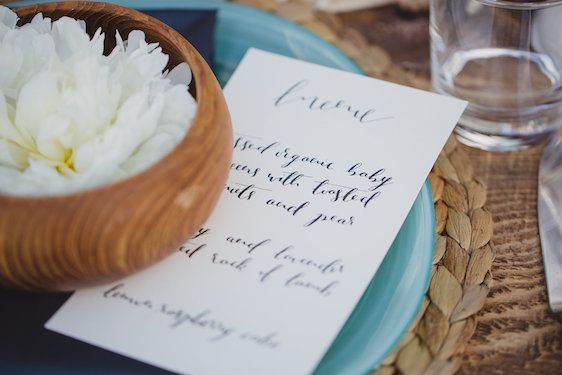 ssed organic baby
eens with toasted
nuts and pear
y and lavender
ed rack of lamb
lemon raspberry cake